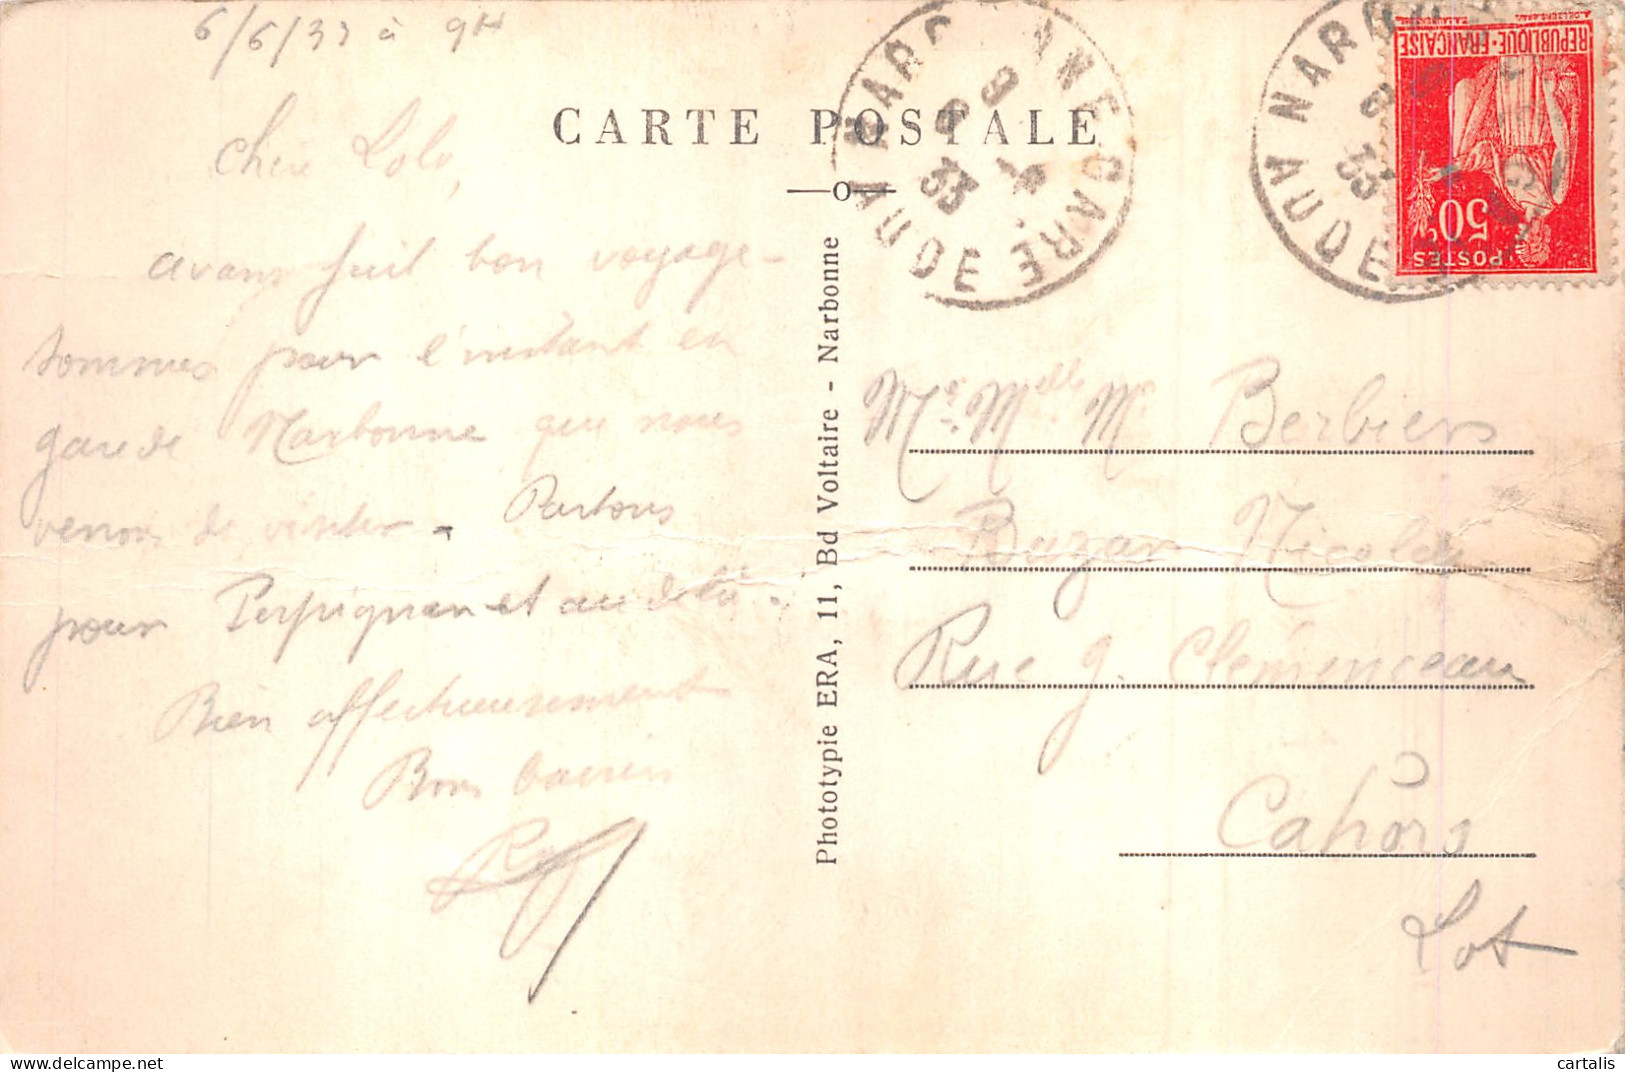 6/6/33 à 9H
CARTE POSTALE
Chère Lolo,
avons fait bon voyage -
sommes pour l'instant en
gare de Narbonne que nous
venons de visiter - Partons
pour Perpignan et au delà.
Bien affectueusement
Bons baisers
Phototypie ERA, 11, Bd Voltaire - Narbonne
NARBONNE GARE
AUDE
33
NARBO
AUDE
33
REPUBLIQUE·FRANÇAISE
50c
POSTES
Me Melle Mr Berbiers
Bazar Nicolas
Rue G. Clemenceau
Cahors
Lot
cartalis